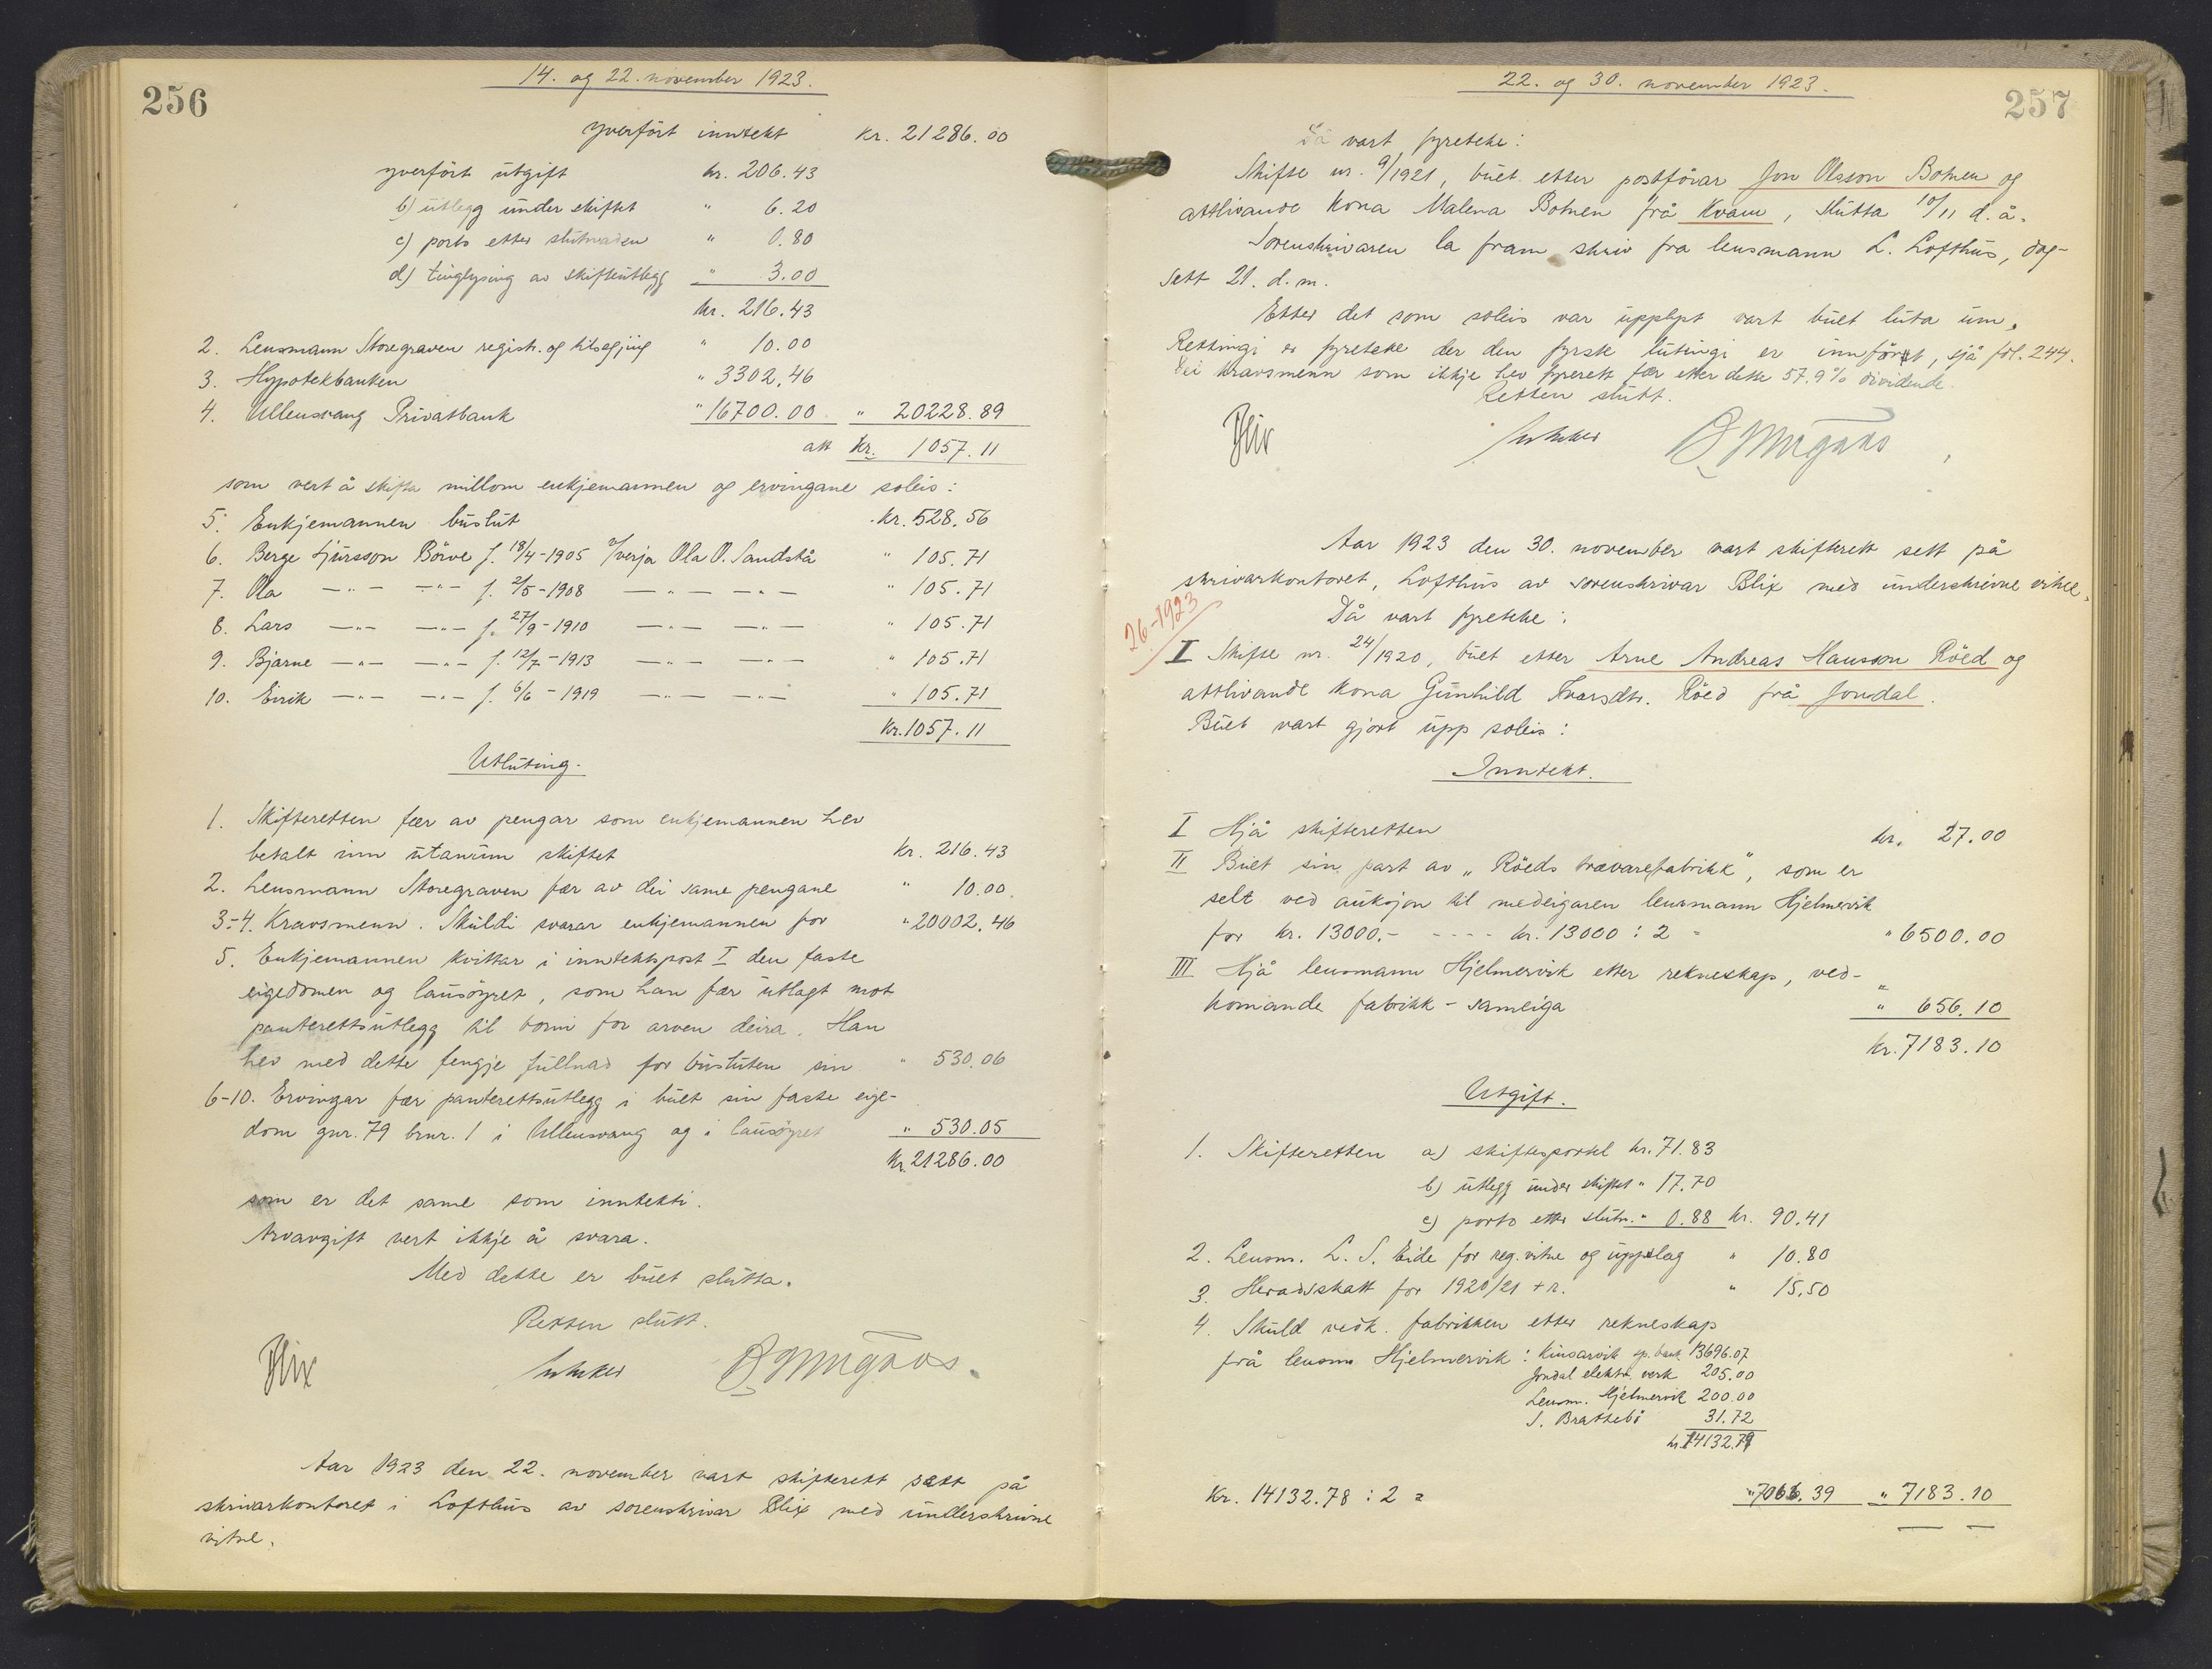 256
14. og 22. november 1923.
yverfört inntekt kr. 21286.00
yverfört ütgift kr. 206.43
b) ütlegg ünder skiftet " 6.20
c) porto etter slütnaden " 0.80
d) tinglysing av skifteütlegg " 3.00
kr. 216.43
2. Lensmann Storegraven registr. og tilsegjing " 10.00
3. Hypotekbanken " 3302.46
4. Ullensvang Privatbank " 16700.00 " 20228.89
att kr. 1057.11
som vert å skifta millom enkjemannen og ervingane soleis:
5. Enkjemannen büslüt kr. 528.56
6. Berge Sjürsson Börve f. 18/4-1905 v/verja Ola O. Sandstå " 105.71
7. Ola —"— —"— f. 2/5-1908 —"— —"— " 105.71
8. Lars —"— —"— f. 27/9-1910 —"— —"— " 105.71
9. Bjarne —"— —"— f. 12/7-1913 —"— —"— " 105.71
10. Eirik —"— —"— f. 6/6-1919 —"— —"— " 105.71
kr. 1057.11
Utlüting.
1. Skifteretten fær av pengar som enkjemannen hev
betalt inn ütanüm skiftet kr. 216.43
2. Lensmann Storegraven fær av dei same pengane " 10.00
3-4. Kravsmenn. Sküldi svarar enkjemannen for " 20002.46
5. Enkjemannen kvittar i inntektspost I den faste
eigedomen og laüsöyret, som han fær ütlagt mot
panterettsütlegg til borni for arven deira. Han
hev med dette fengje füllnad for büslüten sin " 530.06
6-10. Ervingar fær panterettsütlegg i büet sin faste eige-
dom gnr. 79 brnr. 1 i Ullensvang og i laüsöyret " 530.05
kr. 21286.00
som er det same som inntekti.
Arvavgift vert ikkje å svara.
Med dette er büet slütta.
Retten slütt.
Blix
Aar 1923 den 22. november vart skifterett sett på
skrivarkontoret i Lofthüs av sorenskrivar Blix med ünderskrivne
vitne.
257
22. og 30. november 1923.
Då vart fyreteke:
Skifte nr. 9/1921, büet etter postförar Jon Olsson Botnen og
attlivande kona Malena Botnen frå Kvam, slütta 10/11 d.å.
Sorenskrivaren la fram skriv fra lensmann L. Lofthüs, dag-
sett 21. d.m.
Etter det som soleis var üpplyst vart büet lüta üm.
Rettingi er fyreteke der den fyrste lütingi er innfört, sjå fol. 244.
Dei kravsmenn som ikkje hev fyrerett fær etter dette 57.9% dividende.
Retten slütt.
Blix
Aar 1923 den 30. november vart skifterett sett på
skrivarkontoret, Lofthüs av sorenskrivar Blix med ünderskrivne vitne.
Då vart fyreteke:
26-1923
I Skifte nr. 24/1920, büet etter Arne Andreas Hansson Röed og
attlivande kona Günhild Ivarsdtr. Röed frå Jondal.
Büet vart gjort üpp soleis:
Inntekt.
I Hjå skifteretten kr. 27.00
II Büet sin part av „Röeds trævarefabrikk", som er
selt ved aüksjon til medeigaren lensmann Hjelmervik
for kr. 13000.- ---- kr. 13000 : 2 = " 6500.00
III Hjå lensmann Hjelmervik etter rekneskap, ved-
komande fabrikk-sameiga " 656.10
kr. 7183.10
Utgift.
1. Skifteretten a) skiftesportel kr. 71.83
b) ütlegg ünder skiftet " 17.70
c) porto etter slütn. " 0.88 kr. 90.41
2. Lensm. L. S. Eide for reg. vitne og üppslag " 10.80
3. Heradsskatt for 1920/21 + r. " 15.50
4. Sküld vedk. fabrikken etter rekneskap
frå lensm. Hjelmervik: Kinsarvik sp. bank 13696.07
Jondal elektr. verk 205.00
Lensm. Hjelmervik 200.00
S. Brattebö 31.72
kr. 14132.79
Kr. 14132.78 : 2 = " 7066.39 " 7183.10